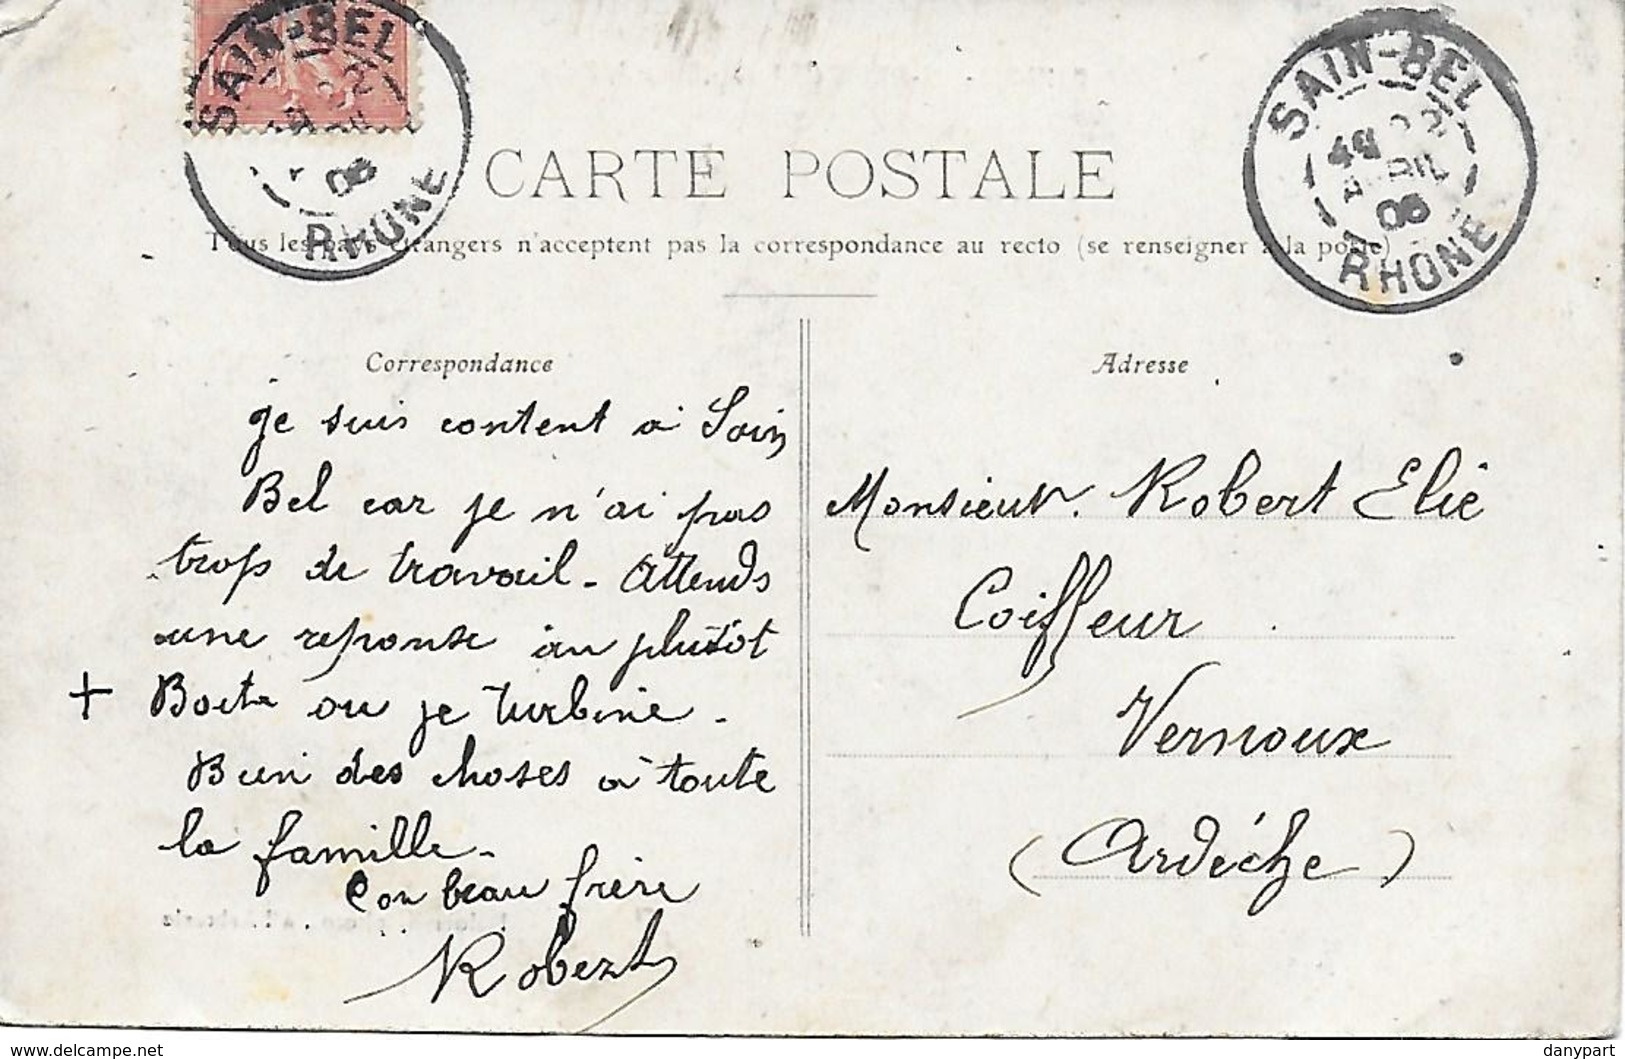 SAIN-BEL
08
RHONE
SAIN-BEL
AVRIL
08
RHONE
CARTE POSTALE
Tous les pays étrangers n'acceptent pas la correspondance au recto (se renseigner à la poste)
Correspondance
je suis content a Sain
Bel car je n'ai pas
trops de travail - attends
une reponse au plutôt
+ Boite ou je turbine -
Bien des choses a toute
la famille -
Ton beau frère
Robert
Adresse
Monsieur Robert Elie
Coiffeur
Vernoux
(Ardéche)
www.delcampe.net
danypart